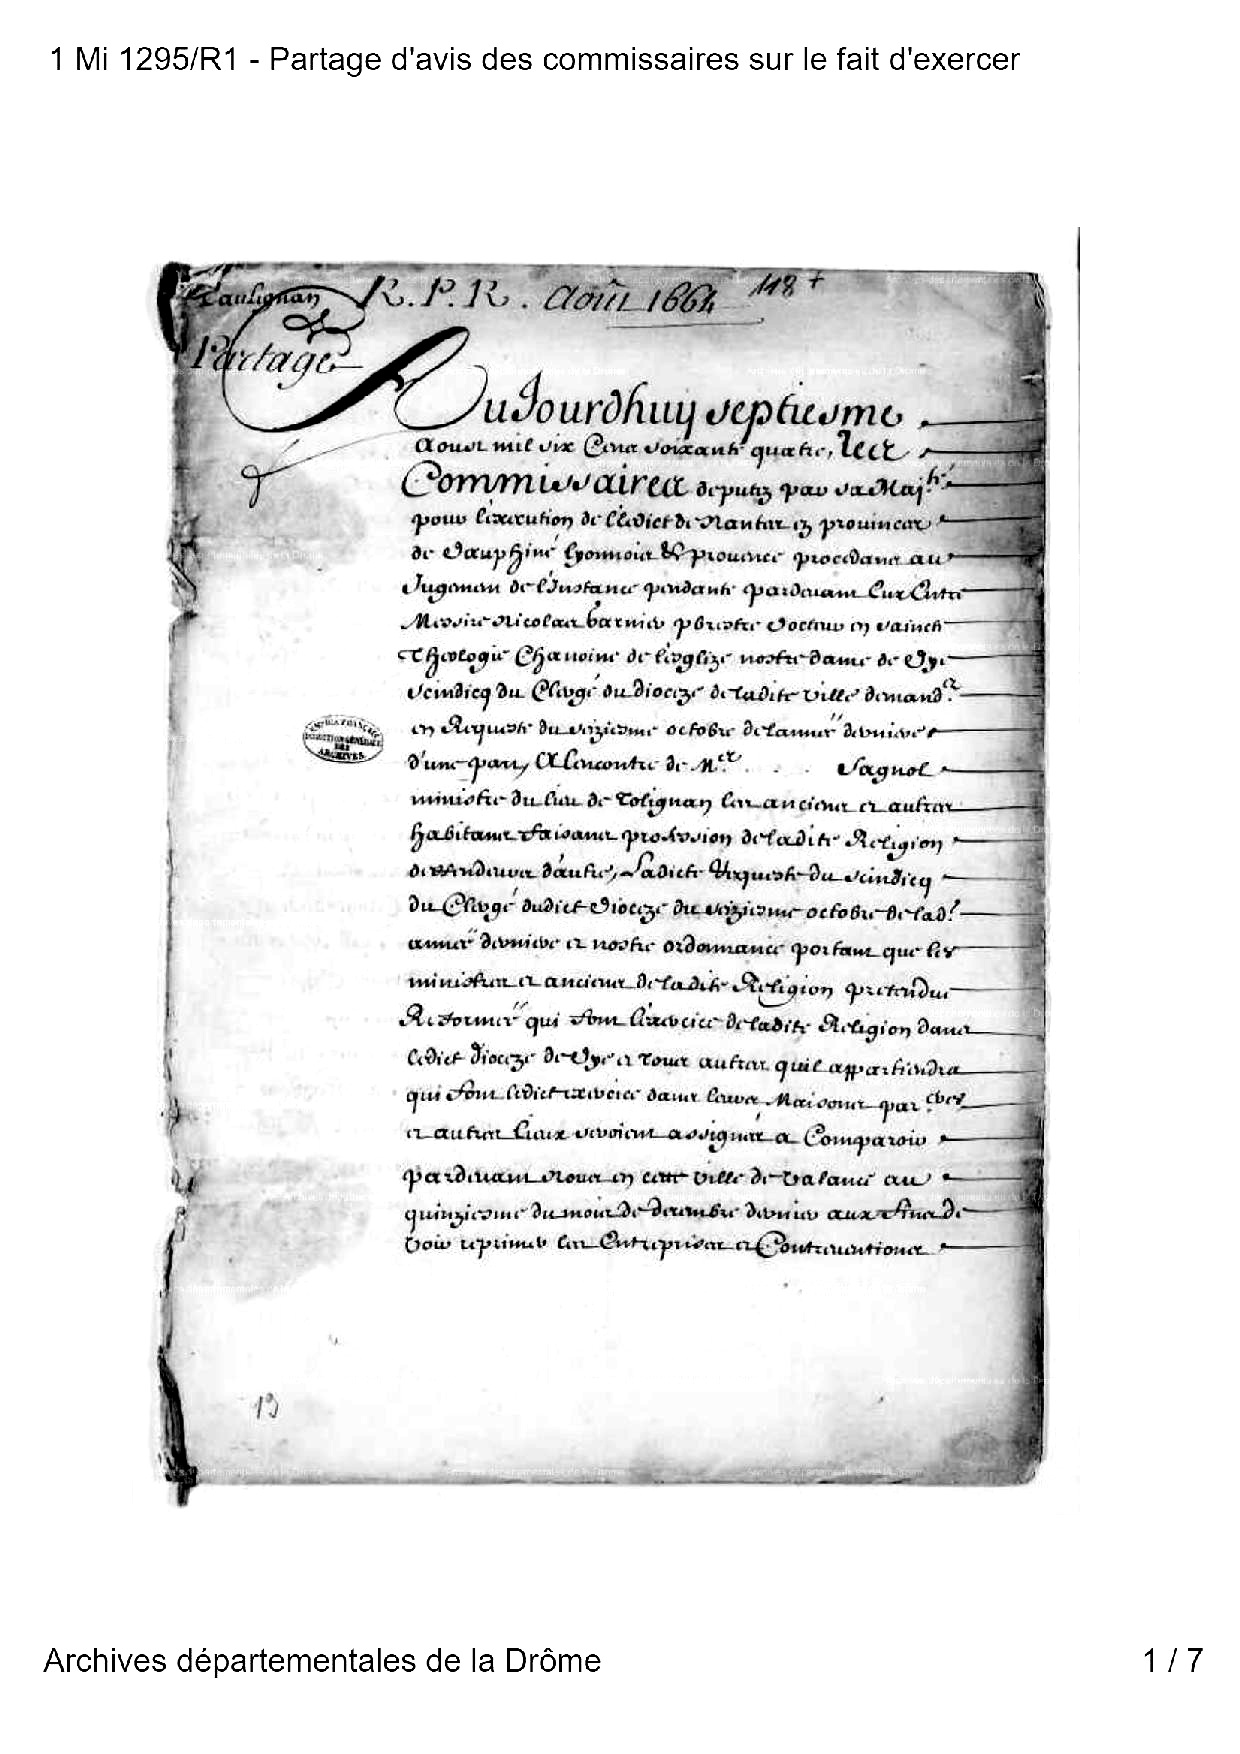 1 Mi 1295/R1 - Partage d'avis des commissaires sur le fait d'exercer
Taulignan R. P. R. Août 1664 118 +
Partage
AuJourdhuy septiesme
aoust mil six Cens soixante quatre, Les
Commissaires deputez par sa Maj.té
pour l'execution de l'Edict de Nantes ez provinces
de Dauphiné Lyonnois & provence procedans au
Jugemen de l'Instance pendante pardevant Eux Entre
Messire Nicolas barnier pbrestre Docteur en saincte
Theologie Chanoine de l'esglize nostre dame de Dye
Scindicq du Clergé du dioceze de ladite ville demand.r
en Requeste du seiziesme octobre de l'année derniere
d'une part, Et l'encontre de M.re . . . Sagnol
ministre du lieu de Tolignan les anciens et autres
habitans faisans profession de ladite Religion
deffendeurs d'autre, Ladicte Requeste du scindicq
du Clergé dudict Dioceze du seiziesme octobre de lad.
année derniere et nostre ordonnance portant que les
ministres et anciens de ladite Religion pretendue
Reformée qui font l'exercice de ladite Religion dans
ledict dioceze de Dye et tous autres quil appartiendra
qui font ledict exercice dans leurs Maisons par.ères
et autres lieux seroient assignés a Comparoir
pardevant Nous en cette ville de Valance au
quinziesme du mois de decembre dernier aux fins de
voir reprimer les Entreprises et Contraventions
ARCHIVES
13
Archives départementales de la Drôme
1 / 7